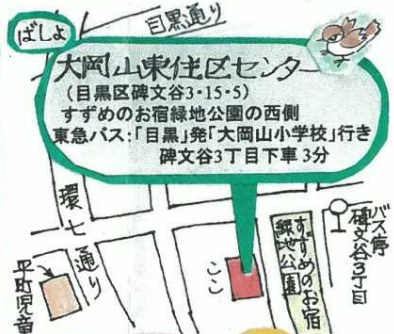 目黒通り
ばしょ
大岡山東住区センター
(目黒区碑文谷3・15・5)
すずめのお宿緑地公園の西側
東急バス:「目黒」発「大岡山小学校」行き
碑文谷3丁目下車 3分
環七通り
平町児童
ここ
すずめのお宿
緑地公園
バス停
碑文谷3丁目